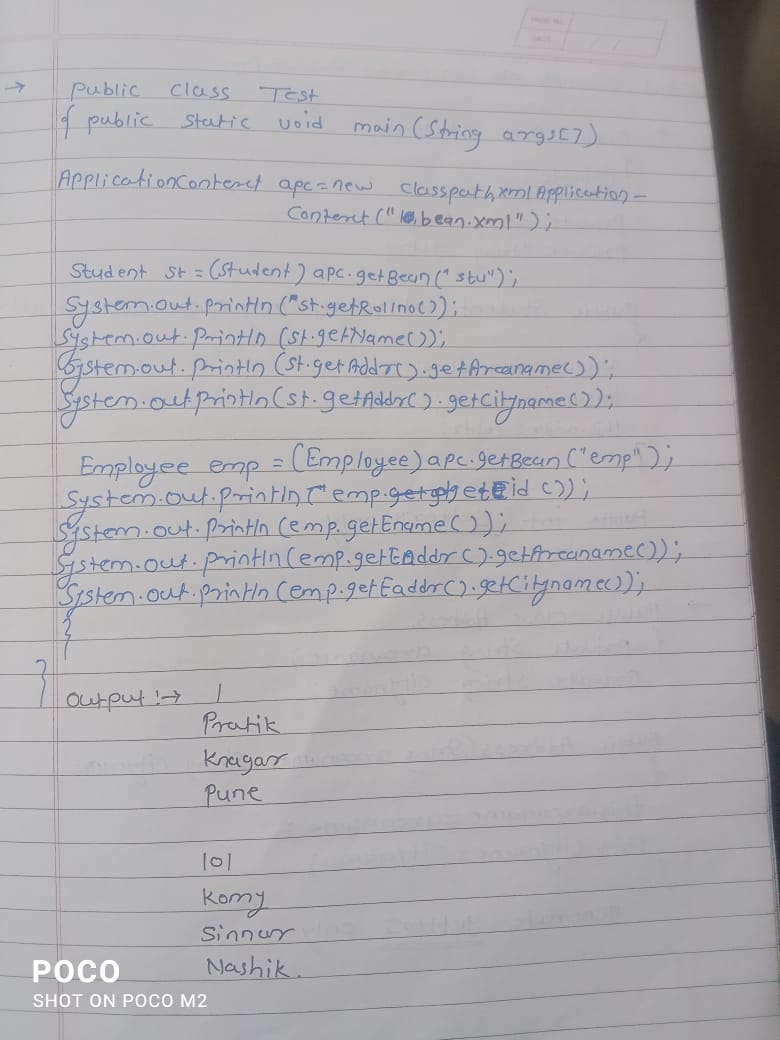 → public class Test
{ public static void main(String args[])
Applicationcontenct apc=new classpathxmlApplication-
Contenct("bean.xml");
Student st = (Student) apc.getBean("stu");
System.out.println("st.getRollno());
System.out.println (st.getName());
System.out.println (st.getAddr().getAreaname());
System.out.println(st.getAddr().getCityname());
Employee emp = (Employee) apc.getBean("emp");
System.out.println (emp.geteid());
System.out.println (emp.getEname());
System.out.println(emp.getEaddr().getAreaname());
System.out.println(emp.getEaddr().getCityname());
}
}
output :→ 1
Pratik
Knagar
Pune
101
Komy
Sinnar
Nashik.
POCO
SHOT ON POCO M2